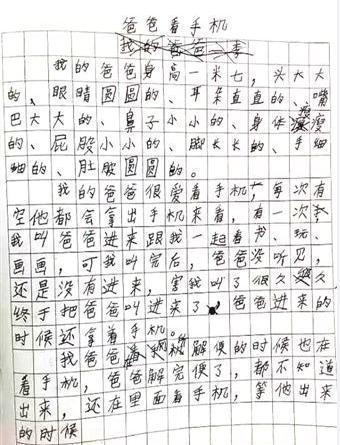 爸爸看手机
我的爸爸
我的爸爸身高一米七，头大大
的、眼睛圆圆的、耳朵直直的、嘴
巴大大的、鼻子小小的、身体瘦瘦
的、屁股小小的、脚长长的、手细
细的、肚股圆圆的。
我的爸爸很爱看手机，每次有
空他都会拿出手机来看，有一次
我叫爸爸进来跟我一起看书、玩、
画画，可我叫完后，爸爸没听见，
还是没有进来，害我叫了很久
终于把爸爸叫进来了，爸爸进来的
时候还拿着手机。
我爸爸解便的时候也在
看手机，爸爸解完便了，都不知道
出来，还在里面看着手机，等他出来
的时候